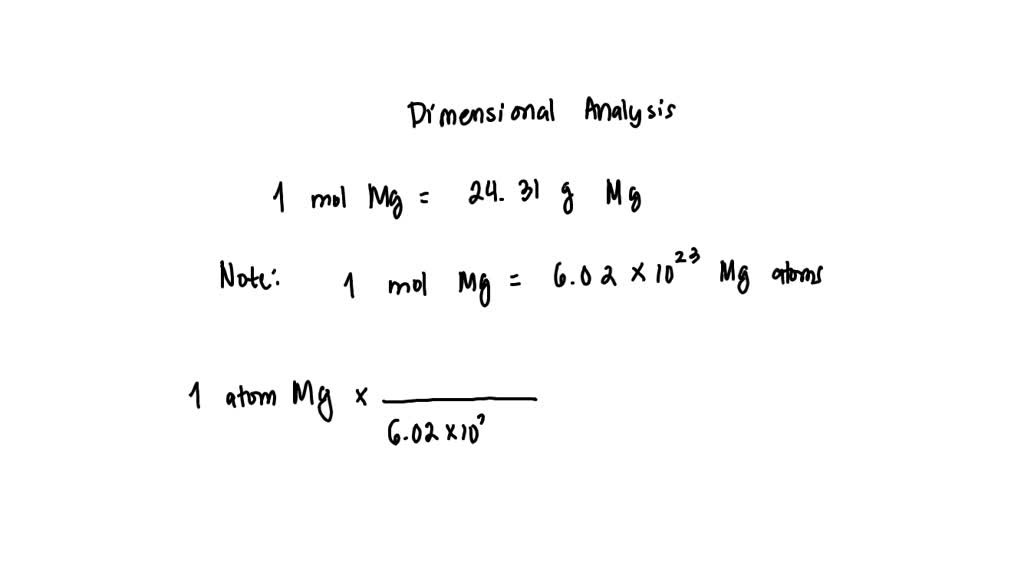 Dimensional Analysis
1 mol Mg = 24.31 g Mg
Note: 1 mol Mg = 6.02 × 10²³ Mg atoms
1 atom Mg ×
6.02 × 10²